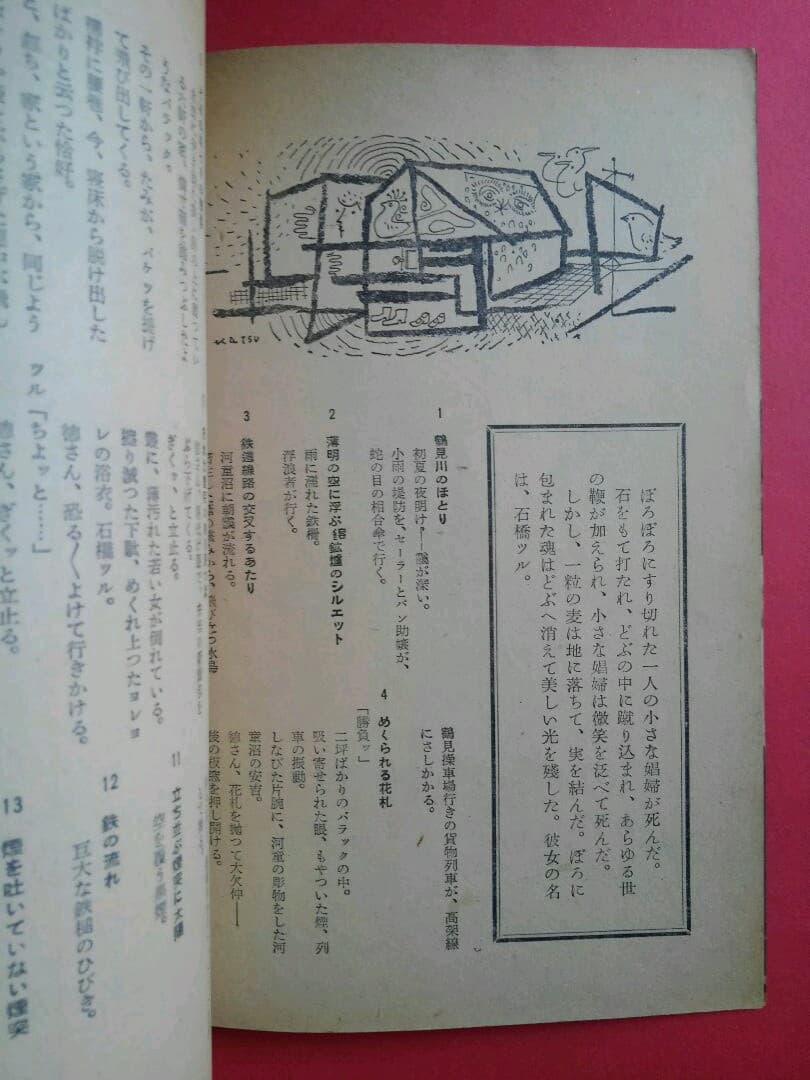 ぼろぼろにすり切れた一人の小さな娼婦が死んだ。
石をもて打たれ、どぶの中に蹴り込まれ、あらゆる世
の鞭が加えられ、小さな娼婦は微笑を泛べて死んだ。
しかし、一粒の麦は地に落ちて、実を結んだ。ぼろに
包まれた魂はどぶへ消えて美しい光を残した。彼女の名
は、石橋ツル。
1 鶴見川のほとり
初夏の夜明け。――靄が深い。
小雨の堤防を、セーラーとパン助嬢が、
蛇の目の相合傘で行く。
2 薄明の空に浮ぶ鎔鉱炉のシルエット
雨に濡れた鉄柵。
浮浪者が行く。
3 鉄道線路の交叉するあたり
河童沼に朝靄が流れる。
鶴見操車場行きの貨物列車が、高架線
にさしかかる。
4 めくられる花札
「勝負ッ」
二坪ばかりのバラックの中。
吸い寄せられた眼、もやついた煙、列
車の振動。
しなびた片腕に、河童の彫物をした河
童沼の安吉。
徳さん、花札を抛つて大欠伸――
後の板窓を押し開ける。
KATSU
うなバラック。
その一軒から、たみが、バケツを提げ
て飛び出してくる。
今、寝床から脱け出した
ばかりと云つた恰好。
と、忽ち、家という家から、同じよう
ぎくッ、と立止る。
叢に、薄汚れた若い女が倒れている。
擦り減つた下駄、めくれ上つたヨレヨ
レの浴衣。石橋ツル。
徳さん、恐る〳〵よけて行きかける。
ツル「ちよッと……」
徳さん、ぎくッと立止る。
11
12 鉄の流れ
巨大な鉄槌のひびき。
13 煙を吐いていない煙突